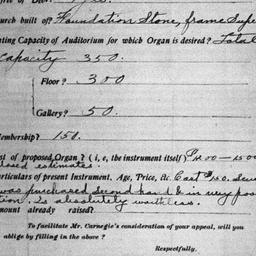 Church built of? Foundation Stone, frame Supe
ating Capacity of Auditorium for which Organ is desired? Total
Capacity 350.
Floor? 300
Gallery? 50.
Membership? 150.
st of proposed Organ? (i, e, the instrument itself)
closed estimates.
articulars of present Instrument. Age, Price, &c. Cost
was purchased second hand & is in very poo
tion. Is absolutely worthless.
mount already raised?
To facilitate Mr. Carnegie's consideration of your appeal, will you
oblige by filling in the above ?
Respectfully,